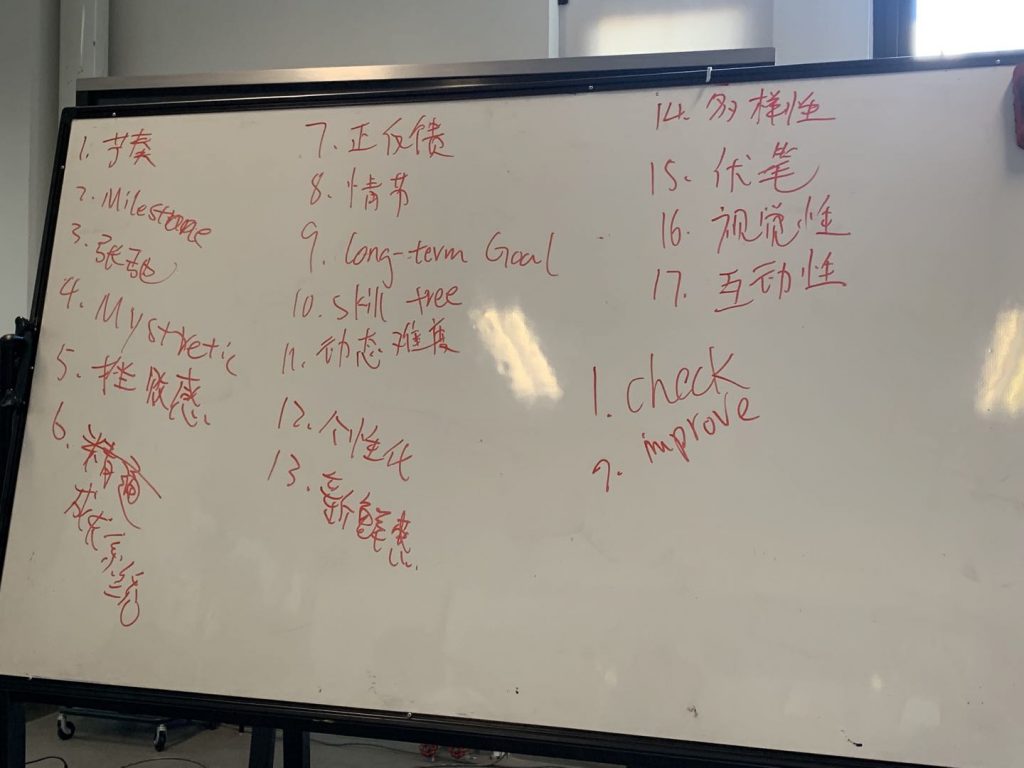 1. 节奏
2. Milestone
3. 张弛
4. Mysthetic
5. 挫败感
6. 精通
成长系统
7. 正反馈
8. 情节
9. Long-term Goal
10. Skill tree
11. 动态难度
12. 个性化
13. 新鲜感
14. 多样性
15. 伏笔
16. 视觉性
17. 互动性
1. check
2. improve